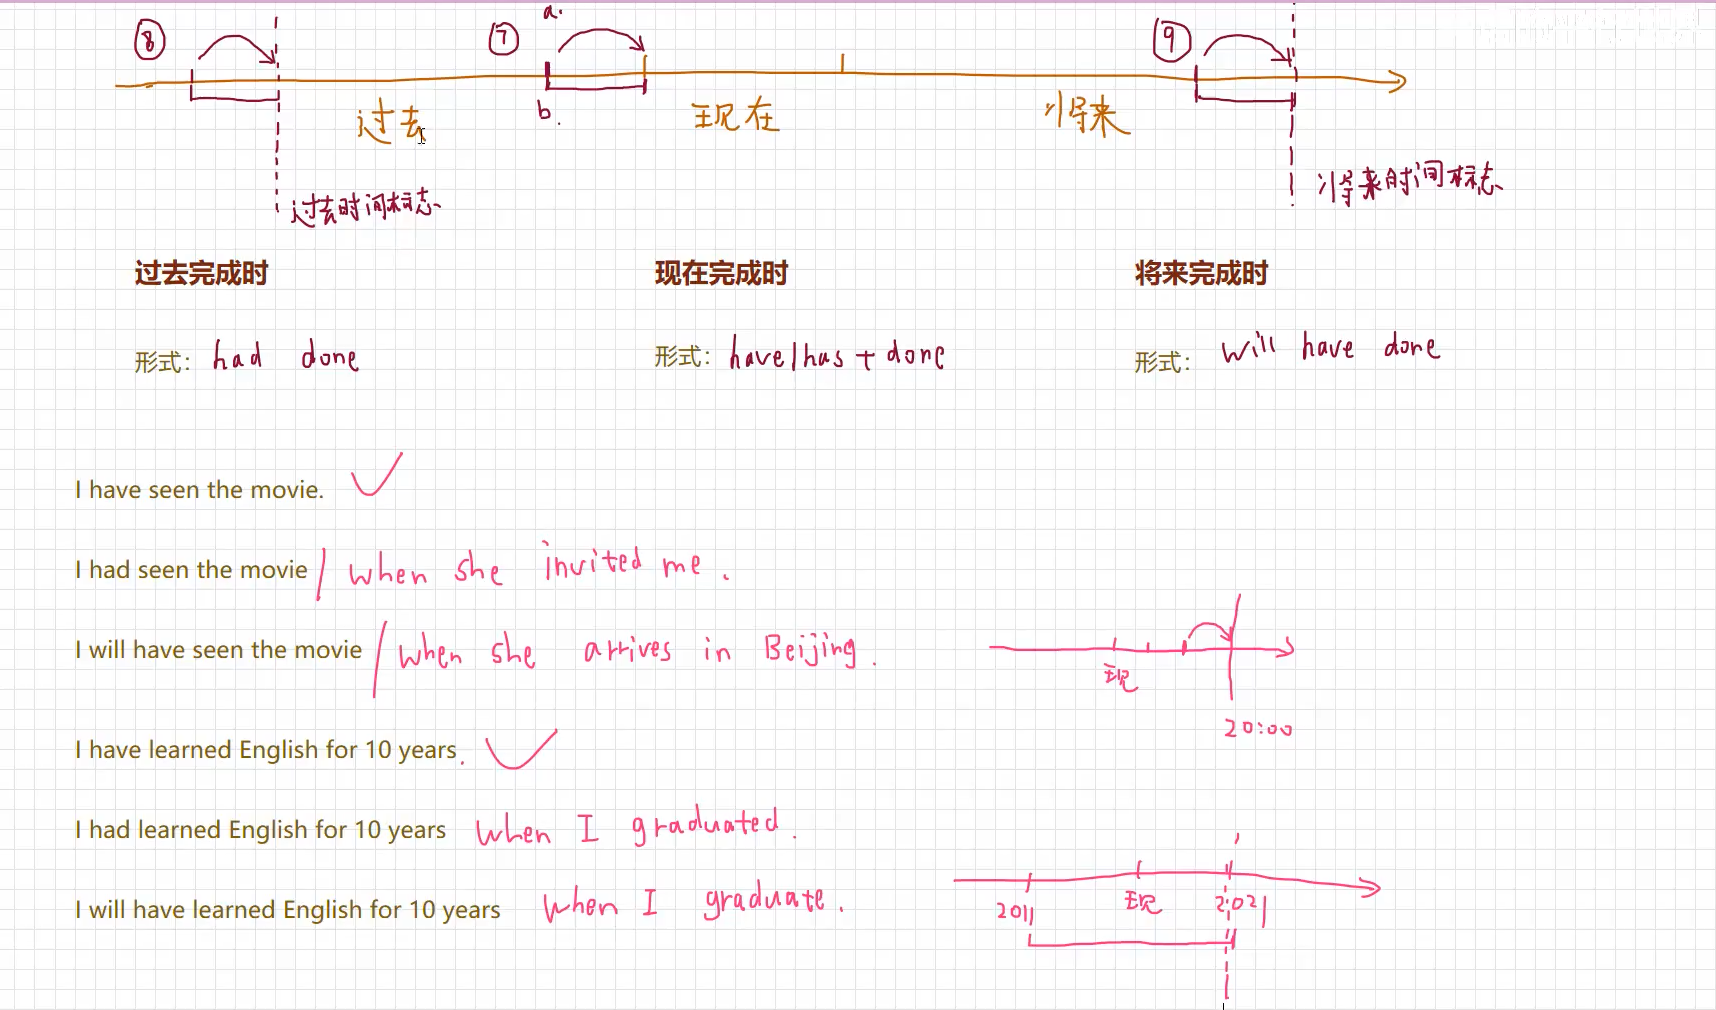 ⑧ ⑦ a. ⑨
过去 b. 现在 将来
过去时间标志 将来时间标志
过去完成时 现在完成时 将来完成时
形式: had done 形式: have/has + done 形式: will have done
I have seen the movie.
I had seen the movie / when she invited me.
I will have seen the movie / when she arrives in Beijing.
现
20:00
I have learned English for 10 years.
I had learned English for 10 years when I graduated.
I will have learned English for 10 years when I graduate.
2011 现 2021